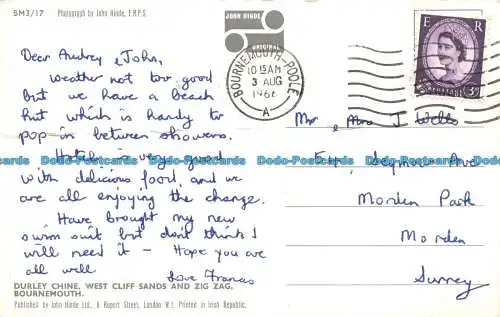 BM3/17 Photograph by John Hinde, F.R.P.S.
JOHN HINDE
ORIGINAL
BOURNEMOUTH-POOLE
10 15AM
3 AUG
1966
A
E R
3D
Dear Audrey & John,
Weather not too good
but we have a beach
hut which is handy to
pop in between showers.
Hotel is very good
with delicious food, and we
are all enjoying the change.
Have brought my new
swim suit but don't think I
will need it – Hope you are
all well
Love Frances
Mr & Mrs J Wells
Seymour Ave
Morden Park
Morden
Surrey
Dodo-Postcards Dodo-Postcards Dodo-Postcards Dodo-Postcards
DURLEY CHINE, WEST CLIFF SANDS AND ZIG ZAG,
BOURNEMOUTH.
Published by John Hinde Ltd., 6 Rupert Street, London W.1. Printed in Irish Republic.